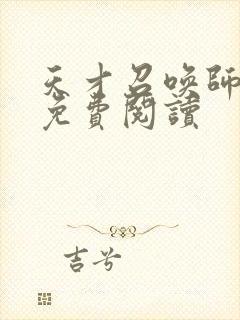 天才召喚師
免費閱讀
吉兮